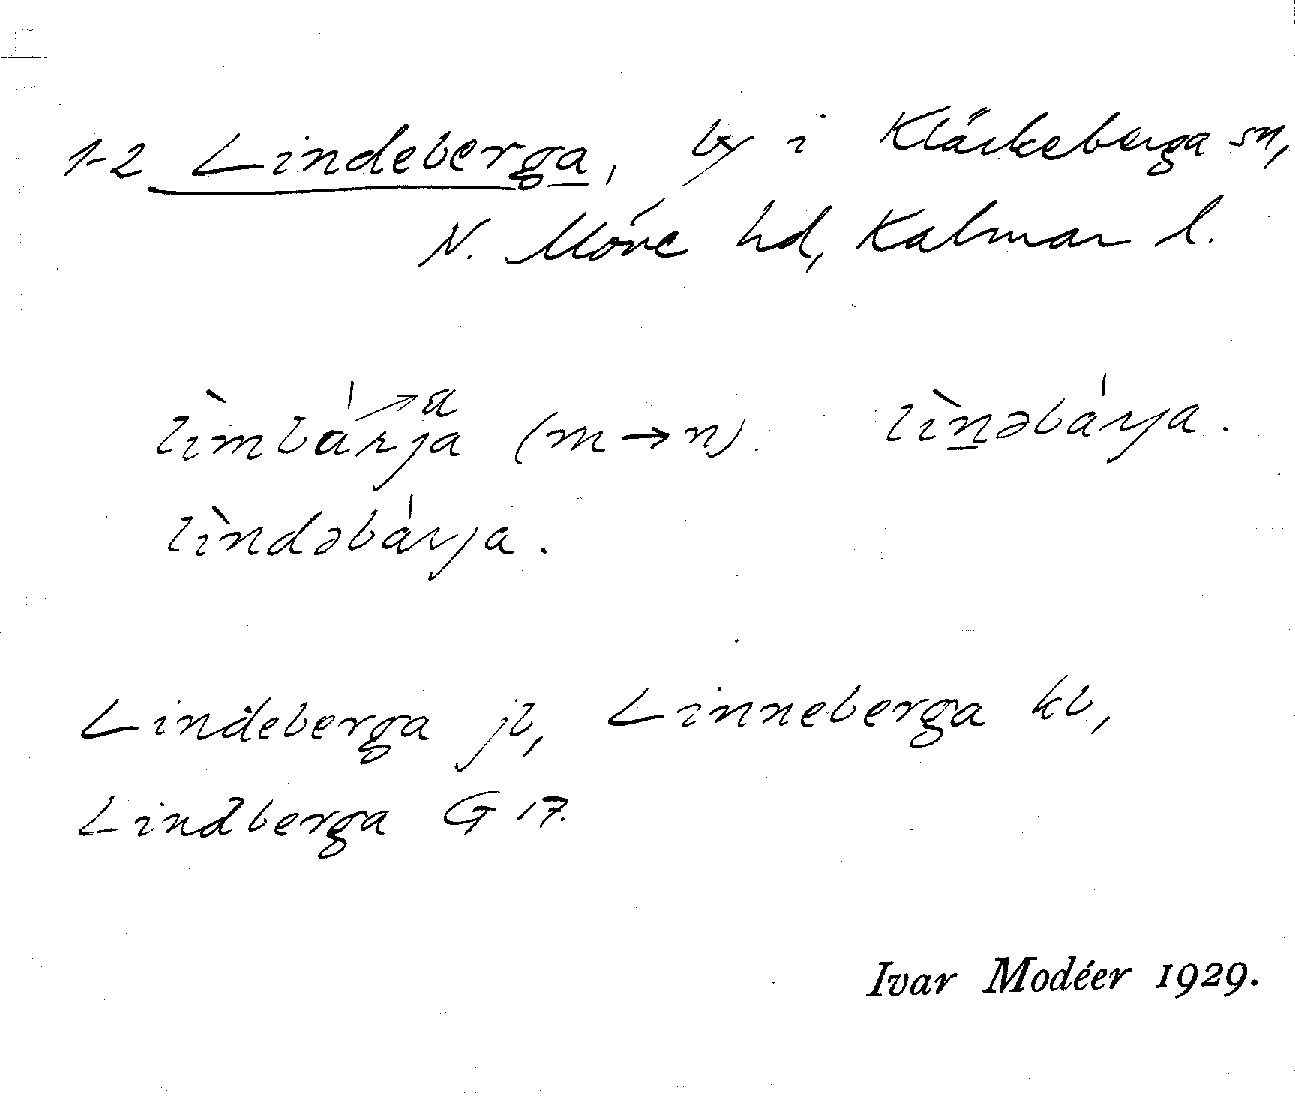 1-2 Lindeberga, by i Kläckeberga sn,
N. Möre hd, Kalmar l.
lìmbárja (m→n). lìnəbárja.
lìndəbárja.
Lindeberga jb, Linneberga kb,
Lindberga G 17.
Ivar Modéer 1929.